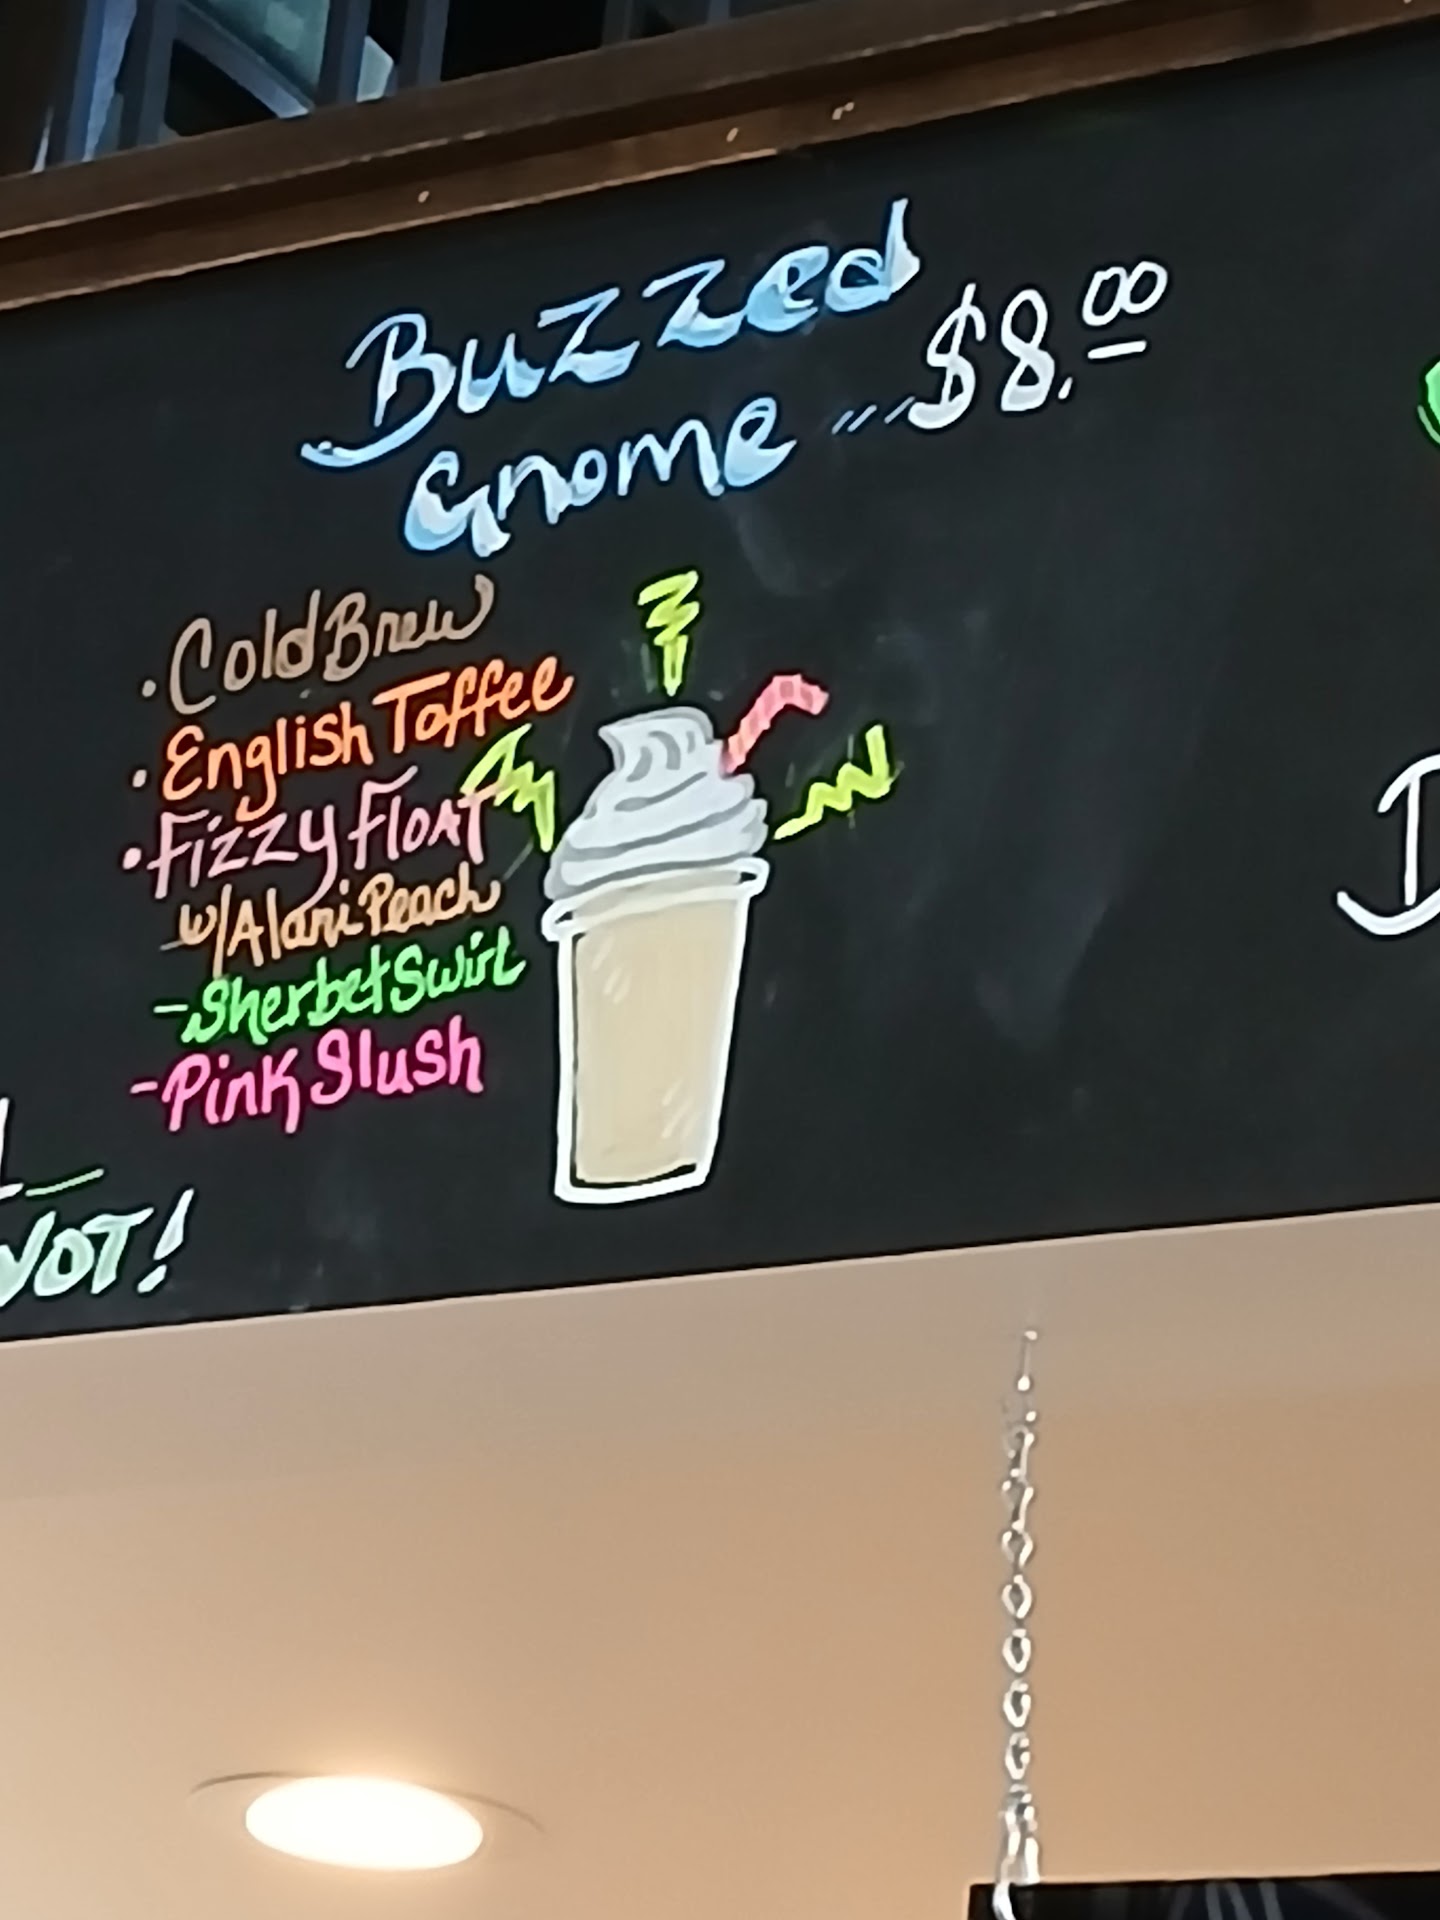 Buzzed
Gnome ... $8.00
• Cold Brew
• English Toffee
• Fizzy Float
w/Alani Peach
- Sherbet Swirl
- Pink Slush
NOT!